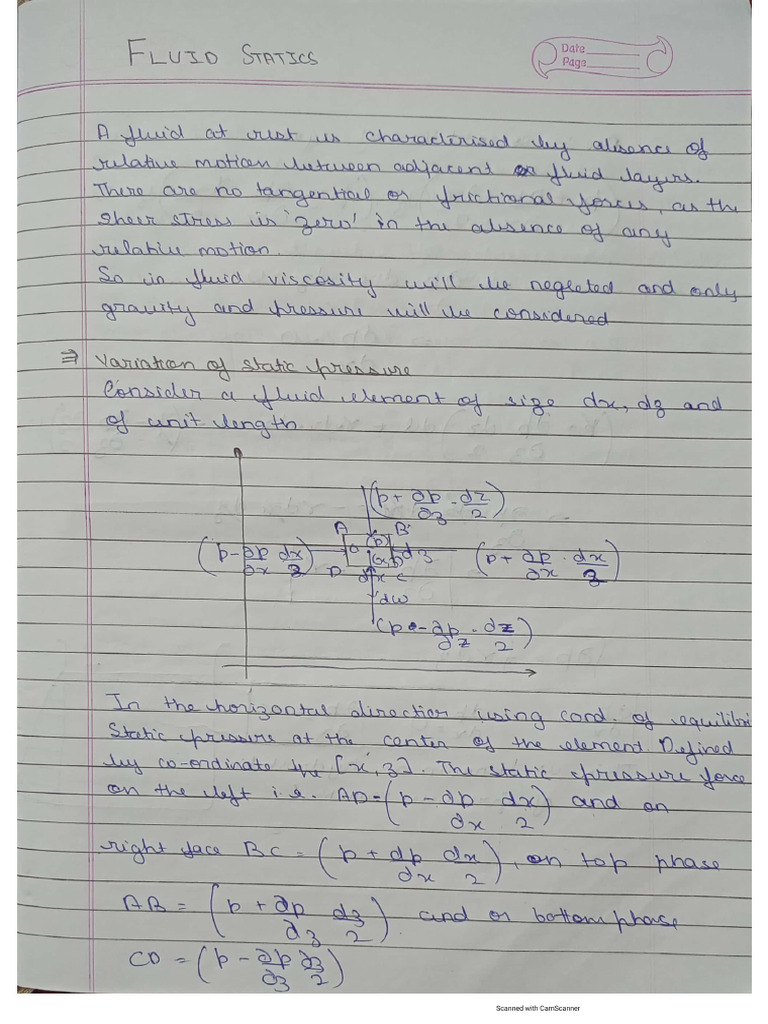 FLUID STATICS
Date
Page
A fluid at rest is characterised by absence of
relative motion between adjacent fluid layers.
There are no tangential or frictional forces, as the
shear stress is 'zero' in the absence of any
relative motion.
So in fluid viscosity will be neglected and only
gravity and pressure will be considered
⇒ Variation of static pressure
Consider a fluid element of size dx, dz and
of unit length
(p + ∂p/∂z · dz/2)
A B
(p - ∂p/∂x dx/2) (p) dz (p + ∂p/∂x · dx/2)
D dx C
dw
(p - ∂p/∂z · dz/2)
In the horizontal direction using cond. of equilibri
Static pressure at the center of the element. Defined
by co-ordinate the [x, z]. The static pressure force
on the left i.e. AD = (p - ∂p/dx dx/2) and on
right face BC = (p + dp/dx dx/2), on top phase
AB = (p + ∂p/∂z dz/2) and on bottom phase
CD = (p - ∂p/∂z ∂z/2)
Scanned with CamScanner